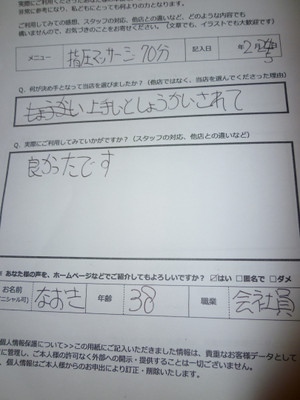 実際にご利用してみての感想、スタッフの対応、他店との違いなど、どのような内容でも
構いませんので、お気づきのことをお聞かせください。（文章でも、イラストでも大歓迎です）
メニュー 指圧マッサージ70分 記入日 年2月
Q. 何が決め手となって当店を選びましたか？（他店ではなく、当店を選んでくださった理由）
上手いとしょうかいされて
Q. 実際にご利用してみていかがですか？（スタッフの対応、他店との違いなど）
良かったです
※ あなた様の声を、ホームページなどでご紹介してもよろしいですか？ ☑はい □匿名で □ダメ
お名前 なおき 年齢 38 職業 会社員
イニシャル可)
個人情報保護について>>この用紙にご記入いただきました情報は、貴重なお客様データとして
に管理し、ご本人様の許可なく外部への開示・提供することは一切ございません。
、個人情報はご本人様からのお申出により訂正・削除いたします。